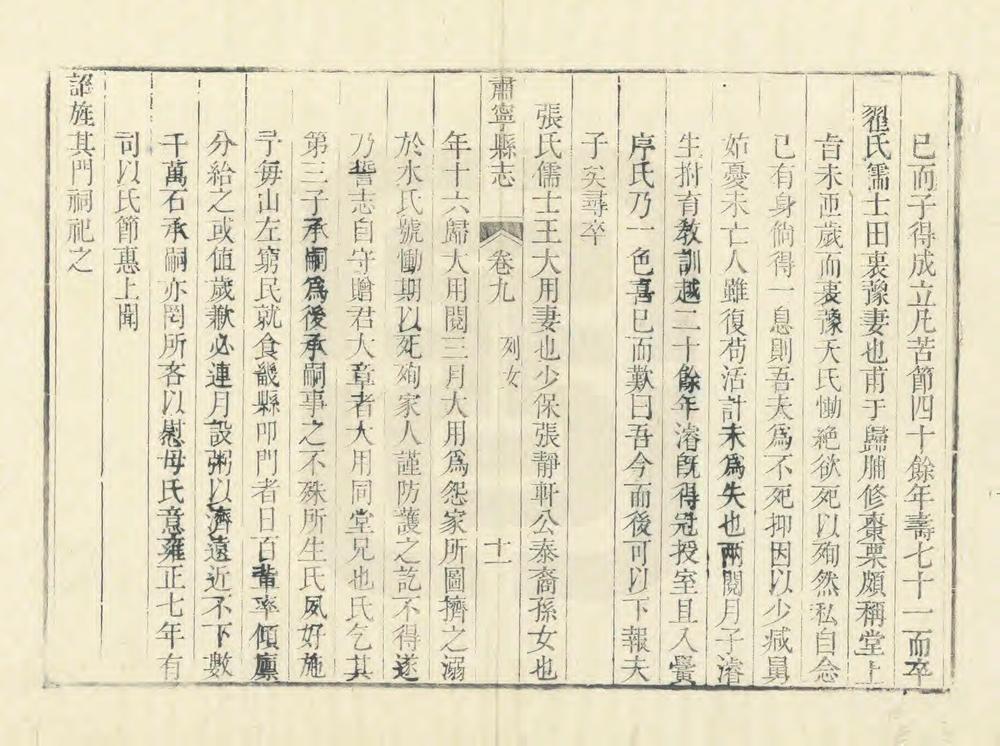 已而子得成立凡苦節四十餘年壽七十一而卒
翟氏儒士田裹蕿妻也甫于歸脯修棗栗頗稱堂上
㫖未匝歲而裹蕿夭氏慟絶欲死以殉然私自念
已有身倘得一息則吾夫爲不死抑因以少減舅
姑憂未亡人雖復苟活計未爲失也兩閱月子濬
生拊育教訓越二十餘年濬旣得冠授室且入黌
序氏乃一色喜已而歎曰吾今而後可以下報夫
子矣尋卒
張氏儒士王大用妻也少保張靜軒公泰裔孫女也
肅寧縣志 卷九 列女 十一
年十六歸大用閱三月大用爲怨家所圖擠之溺
於水氏號慟期以死殉家人謹防護之訖不得遂
乃誓志自守贈君大章者大用同堂兄也氏乞其
第三子承嗣爲後承嗣事之不殊所生氏夙好施
予每山左窮民就食畿縣叩門者日百輩率傾廩
分給之或値歲歉必連月設粥以濟遠近不下數
千萬石承嗣亦罔所吝以慰母氏意雍正七年有
司以氏節惠上聞
詔旌其門祠祀之